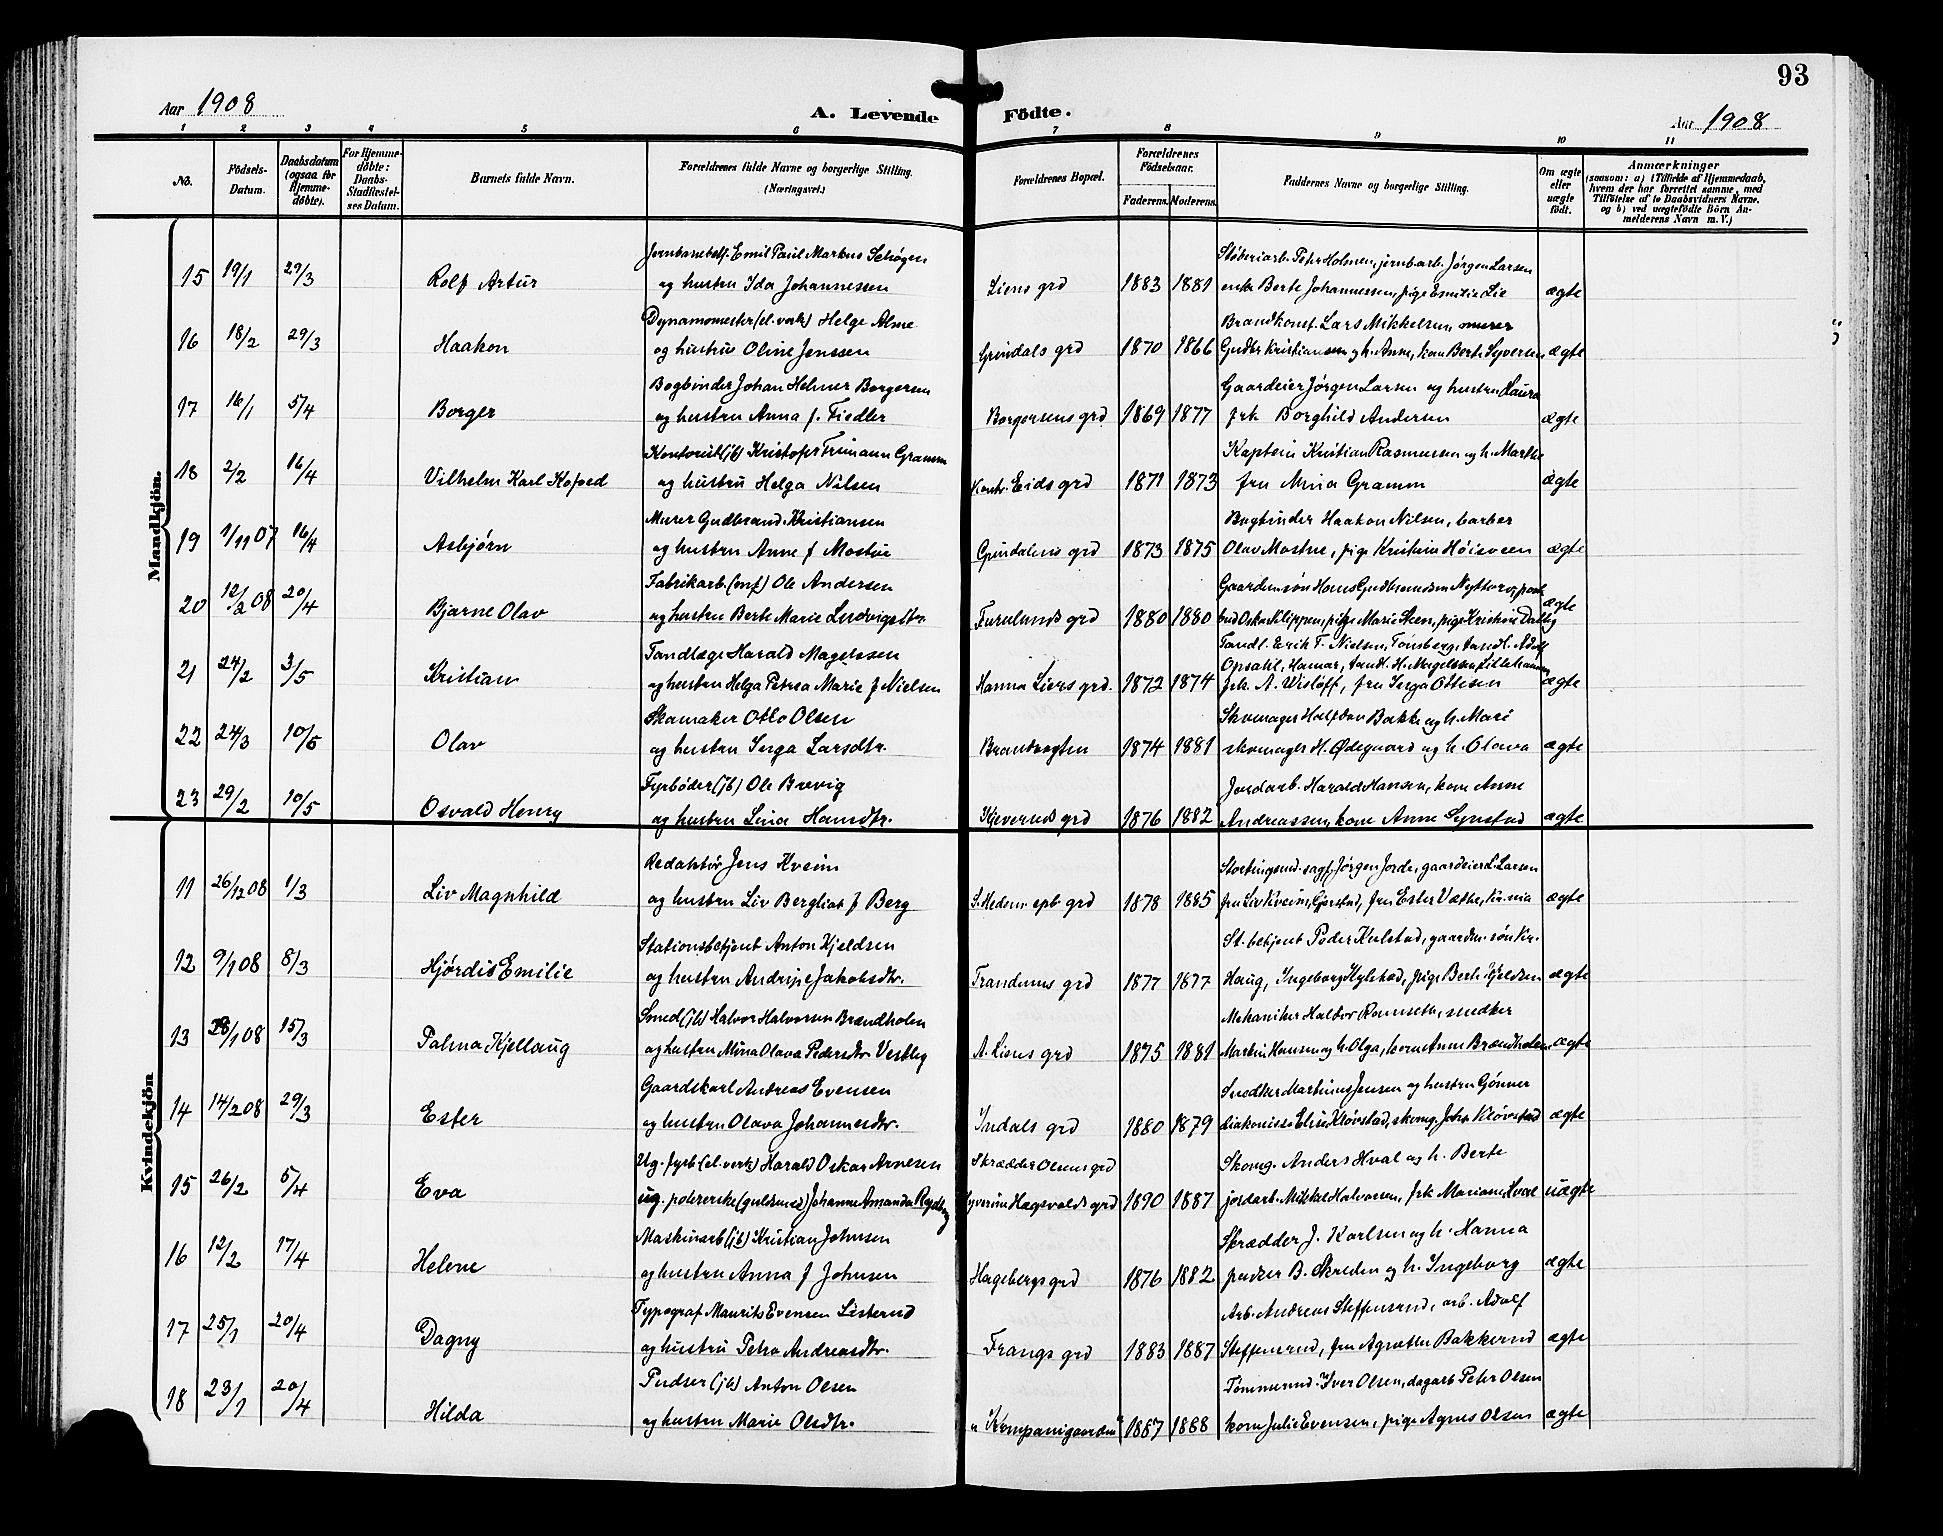 93
Aar 1908 A. Levende Födte. Aar 1908
1 2 3 4 5 6 7 8 9 10 11
No. Födsels-Datum. Daabsdatum (ogsaa for Hjemme-döbte). For Hjemme-döbte: Daabs-Stadfæstel-ses Datum. Barnets fulde Navn. Forældrenes fulde Navne og borgerlige Stilling. (Næringsvei.) Forældrenes Bopæl. Forældrenes Födselsaar. Faderens. Moderens. Faddernes Navne og borgerlige Stilling. Om ægte eller uægte födt. Anmærkninger (saasom: a) i Tilfælde af Hjemmedaab, hvem der har forrettet samme, med Tilföielse af to Daabsvidners Navne, og b) ved uægtefödte Börn An-melderens Navn m. V.)
Mandkjön.
Emil Paul Markus Schøgen Støberiarb. Petr Holmen, jernb.arb. Jørgen Larsen
15 19/1 29/3 Rolf Artur og hustru Ida Johannessen Liens grd 1883 1881 enke Berte Johannessen, pige Emilie Lie ægte
Dynamomester (el. verk) Helge Alme Brandkonst. Lars Mikkelsen, murer
16 18/2 29/3 Haakon og hustru Oline Jenssen Grindals grd 1870 1866 Gudbr Kristiansen og h. Anne, kone Berte Syversen ægte
Bogbinder Johan Helmer Borgersen Gaardeier Jørgen Larsen og hustru Laura
17 16/1 5/4 Borger og hustru Anna f. Fiedler Borgersens grd 1869 1877 frk Borghild Andersen ægte
Kontorist (jb) Kristofer Gramm Kaptein Kristian Rasmussen og h. Marthe
18 2/2 16/4 Vilhelm Karl Kofoed og hustru Helga Nilsen Eids grd 1871 1873 fru Mina Gramm ægte
Murer Gudbrand Kristiansen Bogbinder Haakon Nilsen, barber
19 1/11 07 16/4 Asbjørn og hustru Anne f Mostue Grindalens grd 1873 1875 Olav Mostue, pige Kristine Høisveen ægte
Fabrikarb. Ole Andersen Gaardmsøn Hans Gudbrandsen
20 12/2 08 20/4 Bjarne Olav og hustru Berte Marie Ludvigsdtr. Furulunds grd 1880 1880 bud Oskar Klippen, pige Marie Steen, pige Kristine Dalby ægte
Tandlæge Harald Magelssen Tandl. Erik F. Nielsen, Tønsberg, tandl. Adolf
Opsahl, Hamar, tandl. H. Magelssen, Lillehammer
21 24/2 3/5 Kristian og hustru Helga Petrea Marie f Nielsen Hanna Liers grd. 1872 1874 frk. A. Wisløff, fru Inga Ottesen ægte
Skomaker Otto Olsen Skomager Halfdan Bakke og h. Marie
22 24/3 10/5 Olav og hustru Inga Larsdtr. Brandvagten 1874 1881 skomager H. Ødegaard og h. Olava ægte
Fyrbøder (jb) Ole Brevig Jordarb. Harald Hansen, kone Anne
23 29/2 10/5 Osvald Henry og hustru Lina Hansdtr. Kjeveruds grd 1876 1882 Andreassen, kone Anne Lynstad ægte
Kvindekjön
Redaktør Jens Kveim Jørgen Jorde, gaardeier L. Larsen
11 26/12 08 1/3 Liv Magnhild og hustru Liv Bergliot f Berg S. Hedem spb grd 1878 1885 fru Liv Kveim, Gjerstad, fru Ester Væthe, Kr.nia ægte
Stationsbetjent Anton Kjeldsen St. betjent Peder Kulstad, gaardm. søn Kr.
12 9/1 08 8/3 Hjørdis Emilie og hustru Andrine Jakobsdtr. Trandums grd 1877 1877 Haug, Ingeborg Kylstad, pige Berte Kjeldsen ægte
Smed (jb) Halvor Halvorsen Brændholen Mekaniker Haldor Romseth, snedker
13 28/1 08 15/3 Palma Kjellaug og hustru Mina Olava Pedersdtr Vestby A. Liens grd 1875 1881 Martin Hansen og h. Olga, kone Anne Brændholen ægte
Gaardskarl Andreas Evensen Snedker Martinus Jensen og hustru Gønner
14 14/2 08 29/3 Ester og hustru Olava Johannesdtr. Indals grd 1880 1879 diakonisse Elise Kløvstad, skomg. Johs Kløvstad ægte
Ug. fyrb (el. verk) Harald Oskar Arnesen Skrædder Olsens grd Skomg. Anders Hval og h. Berte
15 26/2 5/4 Eva ug. polererske (guldsmed) Johanne Amanda Rydberg Hagsvolds grd 1890 1887 jordarb. Mikkel Halvorsen, frk Mariane Hval uægte
Maskinarb (jb) Kristian Johnsen Skrædder J. Karlsen og h. Hanna
16 12/2 17/4 Helene og hustru Anna f Johnsen Hagebergs grd 1876 1882 pudser B. Skreden og h. Ingeborg ægte
Typograf Maurits Evensen Listerud Arb. Andreas Steffensrud, arb. Adolf
17 25/1 20/4 Dagny og hustru Petra Andreasdtr. Frangs grd 1883 1887 Steffensrud, fru Agnethe Bakkerud ægte
Pudser (jb) Anton Olsen Tømmermd. Iver Olsen, dagarb Peter Olsen
18 23/1 20/4 Hilda og hustru Marie Olsdtr. "Kompanigaarden" 1887 1888 kone Julie Evensen, pige Agnes Olsen ægte